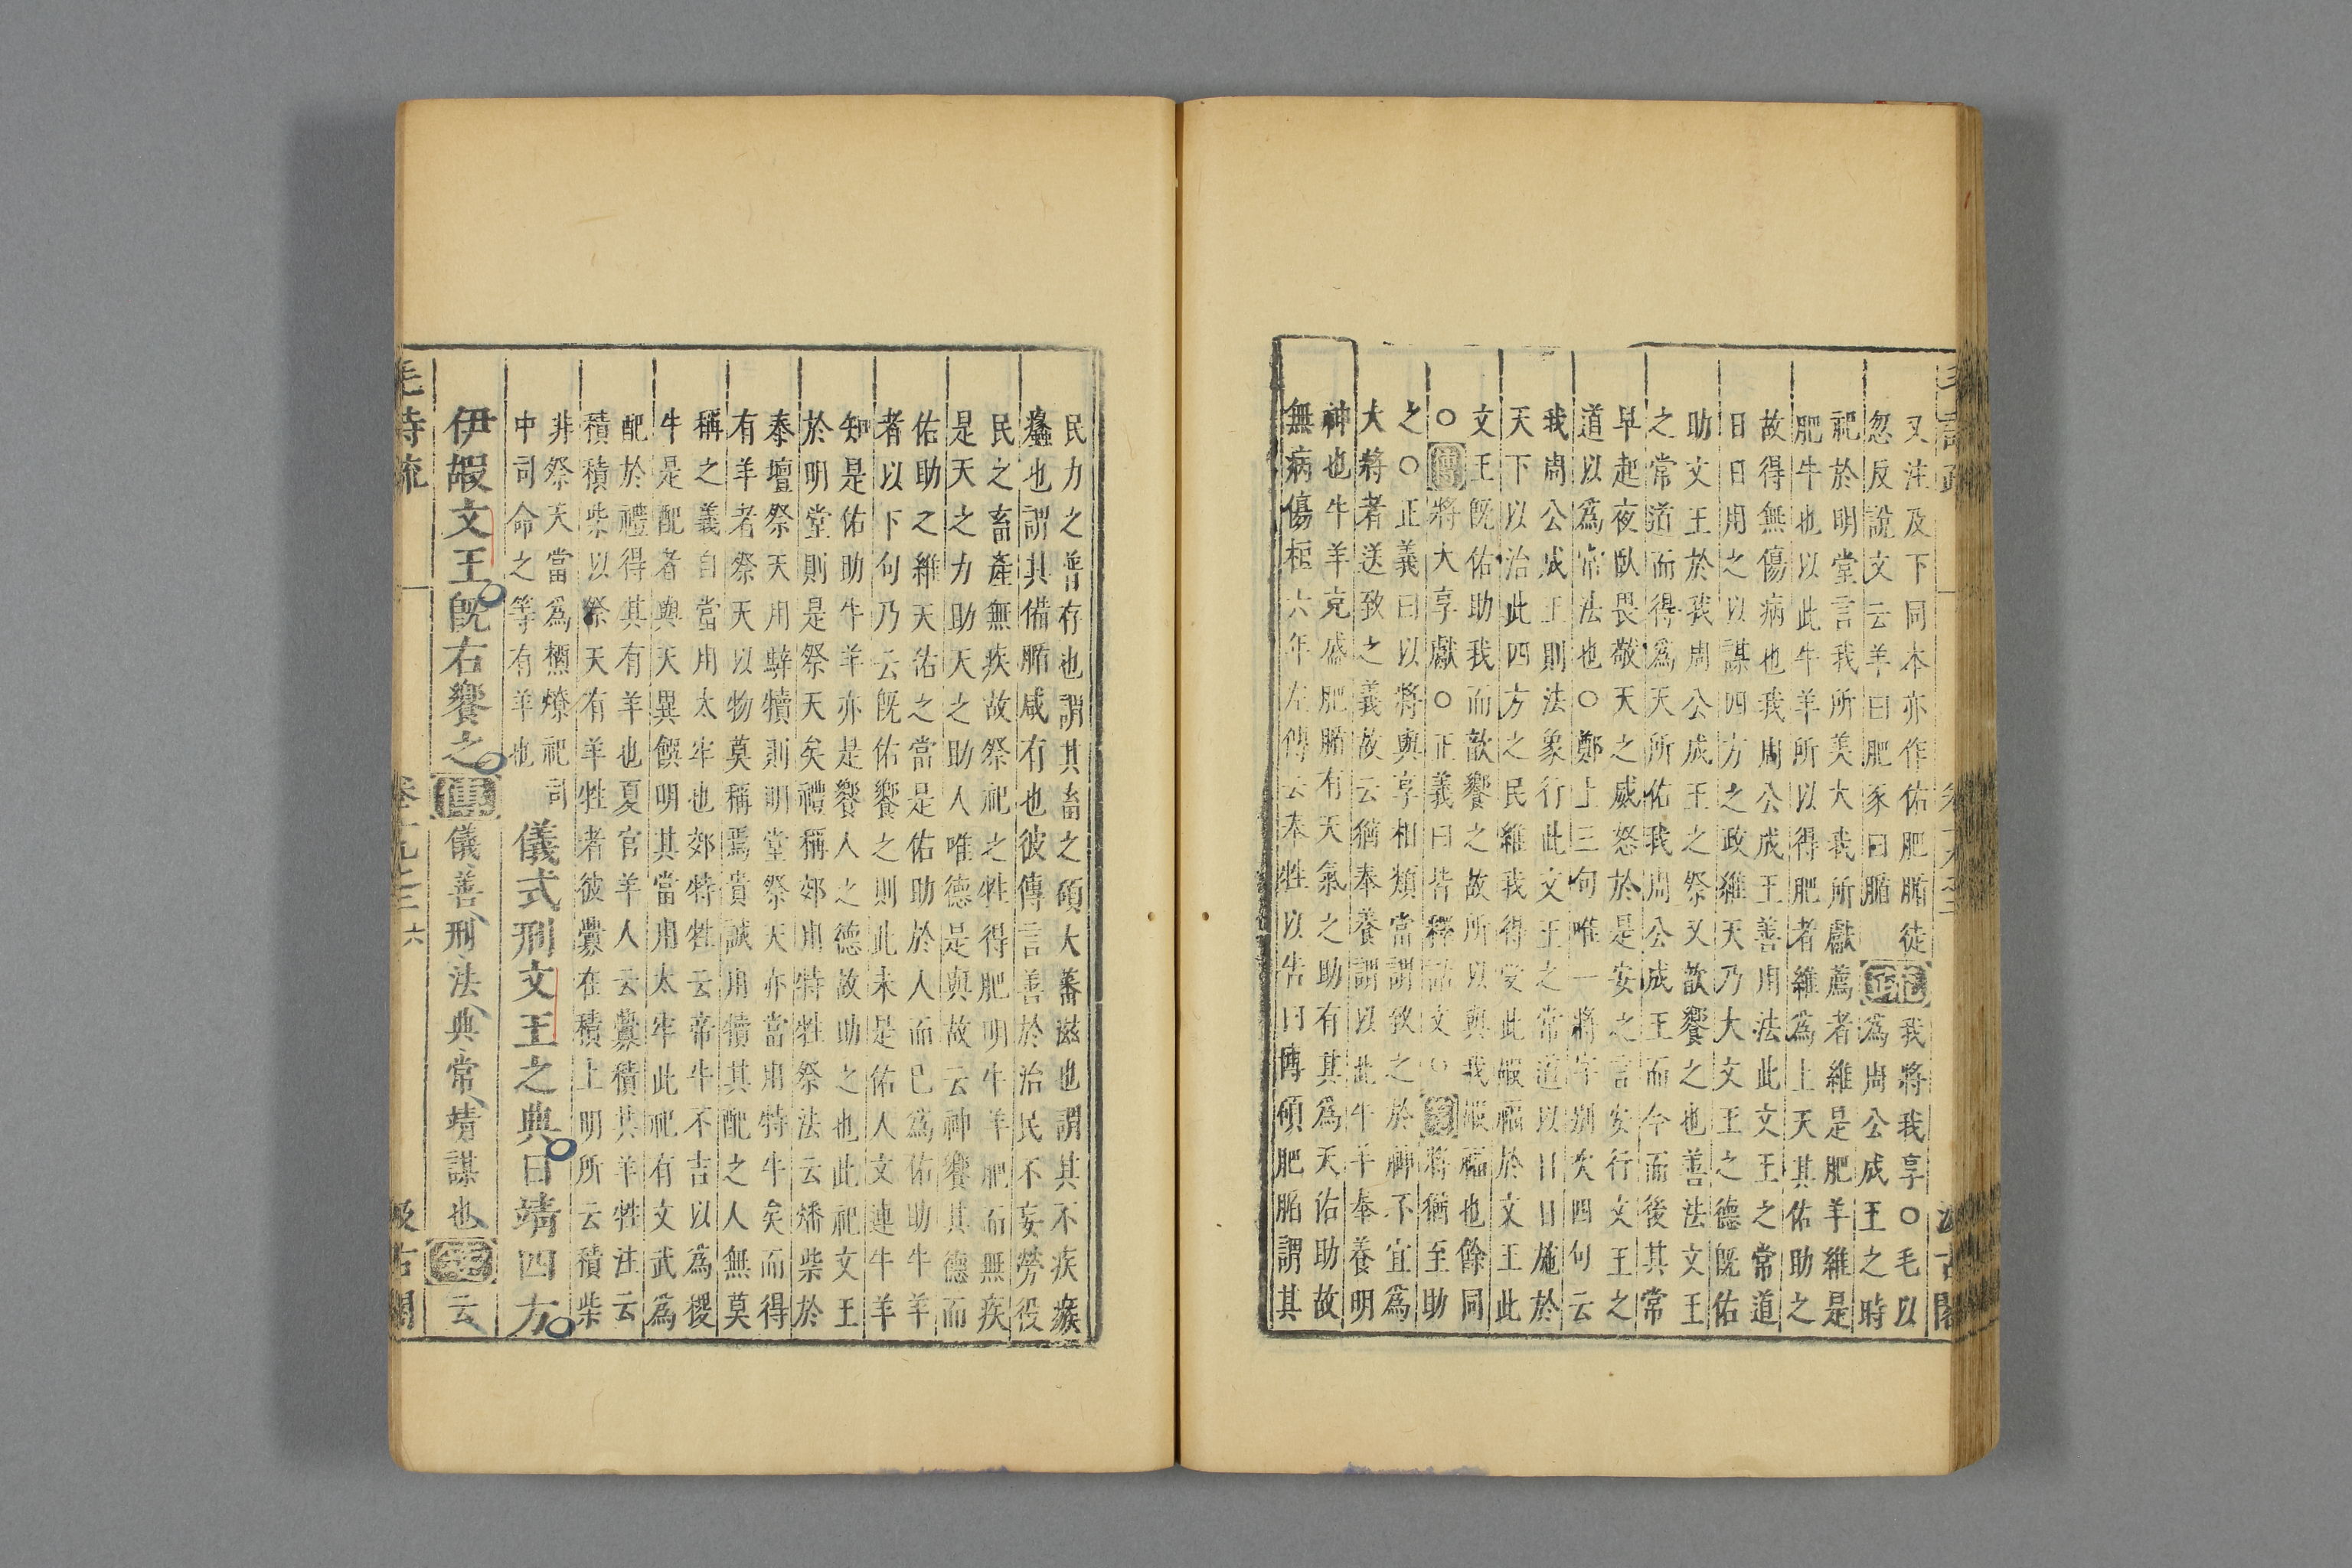 又注及下同本亦作佑肥腯徒
忽反說文云羊曰肥豕曰腯
疏
我將我享○毛以
為周公成王之時
祀於明堂言我所美大我所獻薦者維是肥羊維是
肥牛也以此牛羊所以得肥者維為上天其佑助之
故得無傷病也我周公成王善用法此文王之常道
日日用之以謀四方之政維天乃大文王之德既佑
助文王於我周公成王之祭又歆饗之也善法文王
之常道而得為天所佑我周公成王而今而後其常
早起夜臥畏敬天之威怒於是安之言安行文王之
道以為常法也○鄭上三句唯一將字別次四句云
我周公成王則法象行此文王之常道以日日施於
天下以治此四方之民維我得受此嘏福於文王此
文王既佑助我而歆饗之故所以與我嘏福也餘同
○傳將大享獻○正義曰皆釋詁文○箋將猶至助
之○正義曰以將與享相類當謂致之於神不宜為
大將者送致之義故云猶奉養謂以此牛羊奉養明
神也牛羊充盛肥腯有天氣之助有其為天佑助故
無病傷桓六年左傳云奉牲以告曰博碩肥腯謂其
民力之普存也謂其畜之碩大蕃滋也謂其不疾瘯
蠡也謂其備腯咸有也彼傳言善於治民不妄勞役
民之畜產無疾故祭祀之牲得肥明牛羊肥而無疾
是天之力助天之助人唯德是與故云神饗其德而
佑助之維天佑之當是佑助於人而已為佑助牛羊
者以下句乃云既佑饗之則此未是佑人文連牛羊
知是佑助牛羊亦是饗人之德故助之也此祀文王
於明堂則是祭天矣禮稱郊用特牲祭法云燔柴於
泰壇祭天用騂犢則明堂祭天亦當用特牛矣而得
有羊者祭天以物莫稱焉貴誠用犢其配之人無莫
稱之義自當用太牢也郊特牲云帝牛不吉以為稷
牛是配者與天異饌明其當用太牢此祀有文武為
配於禮得其有羊也夏官羊人云釁積共羊牲注云
積積柴以祭天有羊牲者彼釁在積上明所云積柴
非祭天當為槱燎祀司
中司命之等有羊也
儀式刑文王之典日靖四方
伊嘏文王既右饗之
傳
儀善刑法典常靖謀也
箋
云
毛詩疏
卷十九之二
六
汲古閣